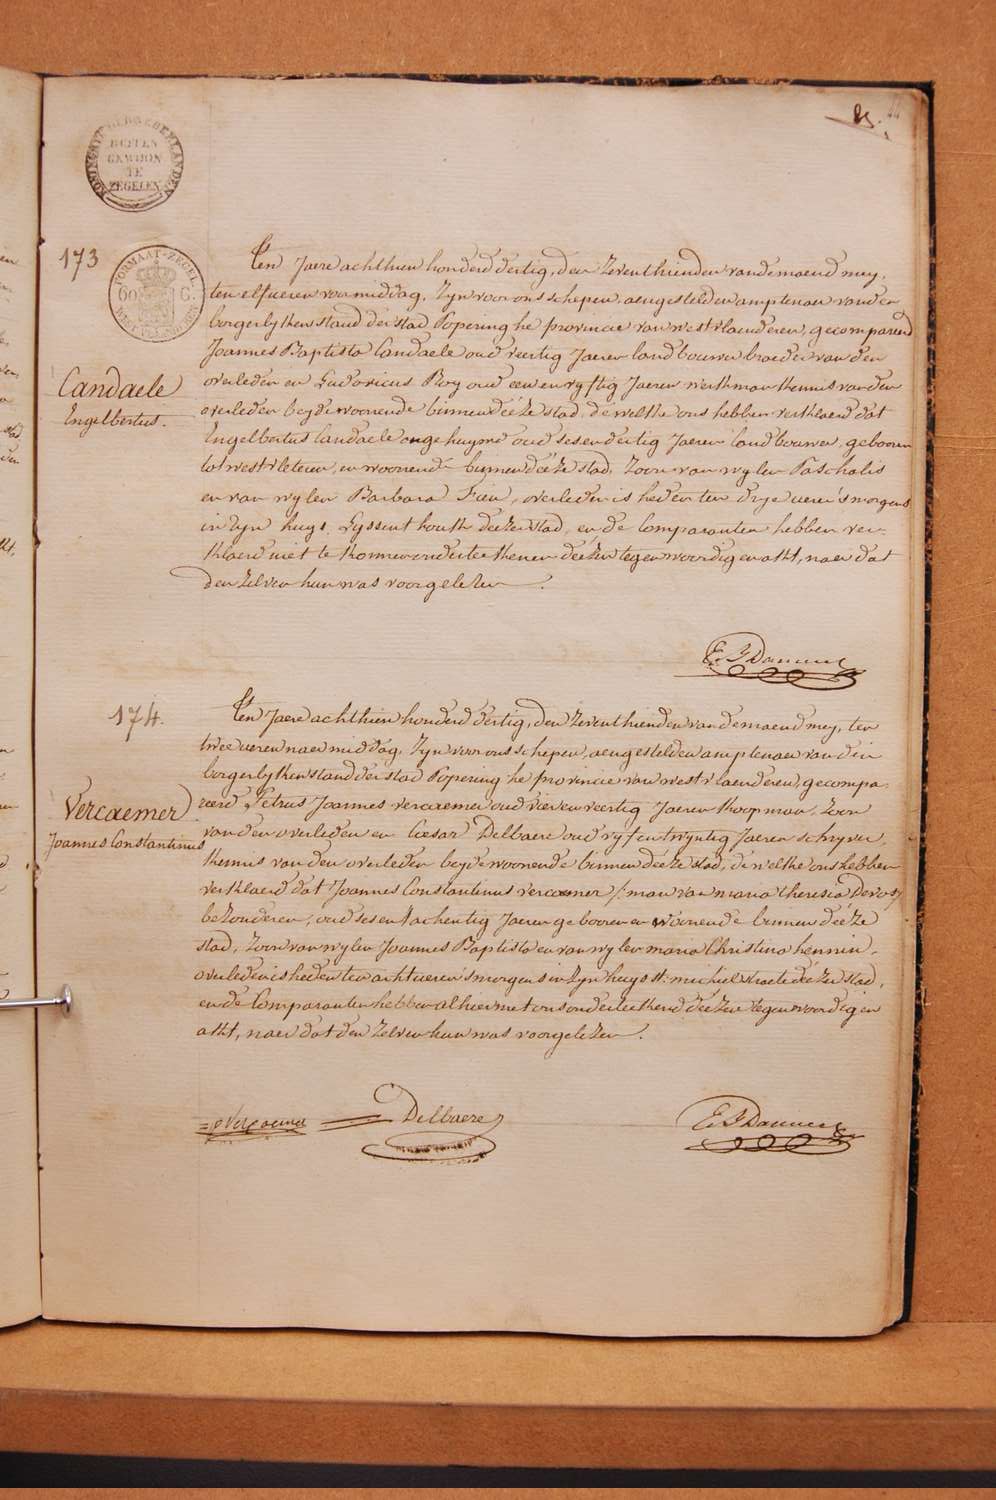 85.
KONINGRYK DER NEDERLANDEN
BUITEN
GEWOON
TE
ZEGELEN
173
FORMAAT-ZEGEL
60 C.
Candaele
Engelbertus.
Ten Jaere achthien honderd dertig, den Zeventhienden van de maend mey,
ten elf ueren voormiddag, Zyn voor ons schepen, aengestelden amptenaer van den
borgerlyken stand der stad Poperinghe provincie van westvlaenderen, gecompareerd
Joannes Baptista Candaele oud veertig Jaeren landbouwer broeder van den
overleden en Ludovicus Roy oud een en vyftig Jaeren werkman kennis van den
overleden beyde woonende binnen déeze stad, de welke ons hebben verklaerd dat
Engelbertus Candaele ongehuywd oud ses en dertig Jaeren landbouwer, gebooren
tot westvleteren, en woonende binnen déeze stad, Zoon van wylen Paschalis
en van wylen Barbara Fieu, overleden is heden ten drye ueren 'smorgens
in Zyn huys, Eyssenthouk deezer stad, en de Comparanten hebben ver-
klaerd niet te konnen onderteekenen déezen tegenwoordigen akt, naer dat
den zelven hun was voorgelezen.
174.
Vercaemer
Joannes Constantinus
Ten Jaere achthien honderd dertig, den Zeventhienden van de maend mey, ten
twee ueren naermiddag, Zyn voor ons schepen, aengestelden amptenaer van den
borgerlyken stand der stad Poperinghe provincie van westvlaenderen, gecompa-
reerd Petrus Joannes vercaemer oud vier en veertig Jaeren koopman, Zoon
van den overleden en Cæsar Delbaere oud vyf en twyntig Jaeren schryver,
kennis van den overleden beyde woonende binnen deeze stad, de welke ons hebben
verklaerd dat Joannes Constantinus vercaemer /: man van maria theresia Devos :/
bezonderen, oud ses en tachentig Jaeren gebooren en woonende binnen déeze
stad, Zoon van wylen Joannes Baptista en van wylen maria Christina hennin,
overleden is heden ten acht ueren 'smorgens in Zyn huys st: michiel straete déezer stad,
en de Comparanten hebben alhier met ons onderteekend déezen tegenwoordigen
akt, naer dat den zelven hun was voorgelezen.
Vercaemer
Delbaere